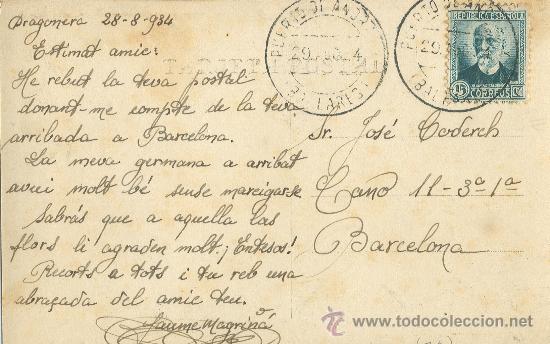 Dragonera 28-8-934
Estimat amic:
He rebut la teva postal
donant-me compte de la teva
arribada a Barcelona.
La meva germana a arribat
avui molt bé sense mareigar-se
Sabrás que a aquella las
flors li agraden molt ¡Entesos!
Recorts a tots i tu reb una
abraçada del amic teu.
Jaume Magriñá
PUERTO DE ANDR
29
BALEARES
REPUBLICA ESPAÑOLA
15 CORREOS Cts
Sr. José Coderch
Cano 11-3º 1ª
Barcelona
www.todocoleccion.net